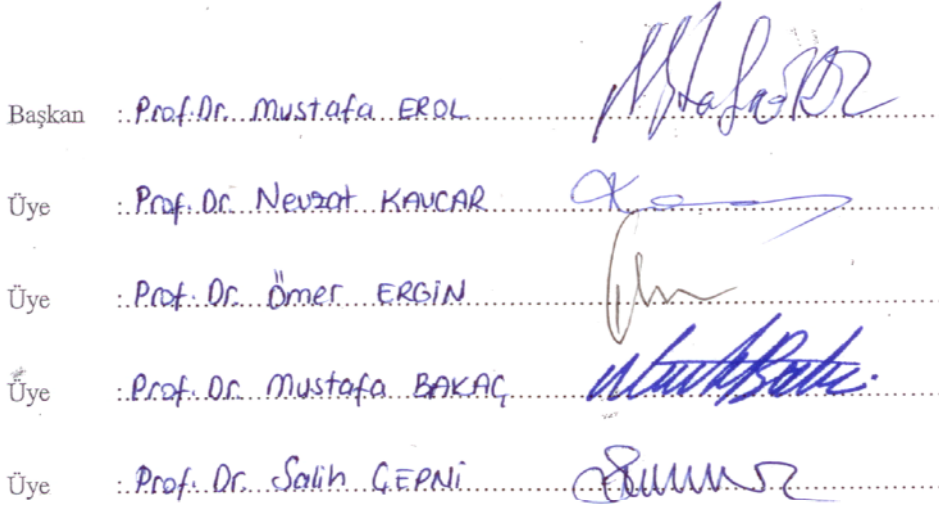 Başkan : Prof. Dr. Mustafa EROL
Üye : Prof. Dr. Nevzat KAVCAR
Üye : Prof. Dr. Ömer ERGİN
Üye : Prof. Dr. Mustafa BAKAÇ
Üye : Prof. Dr. Salih ÇEPNİ